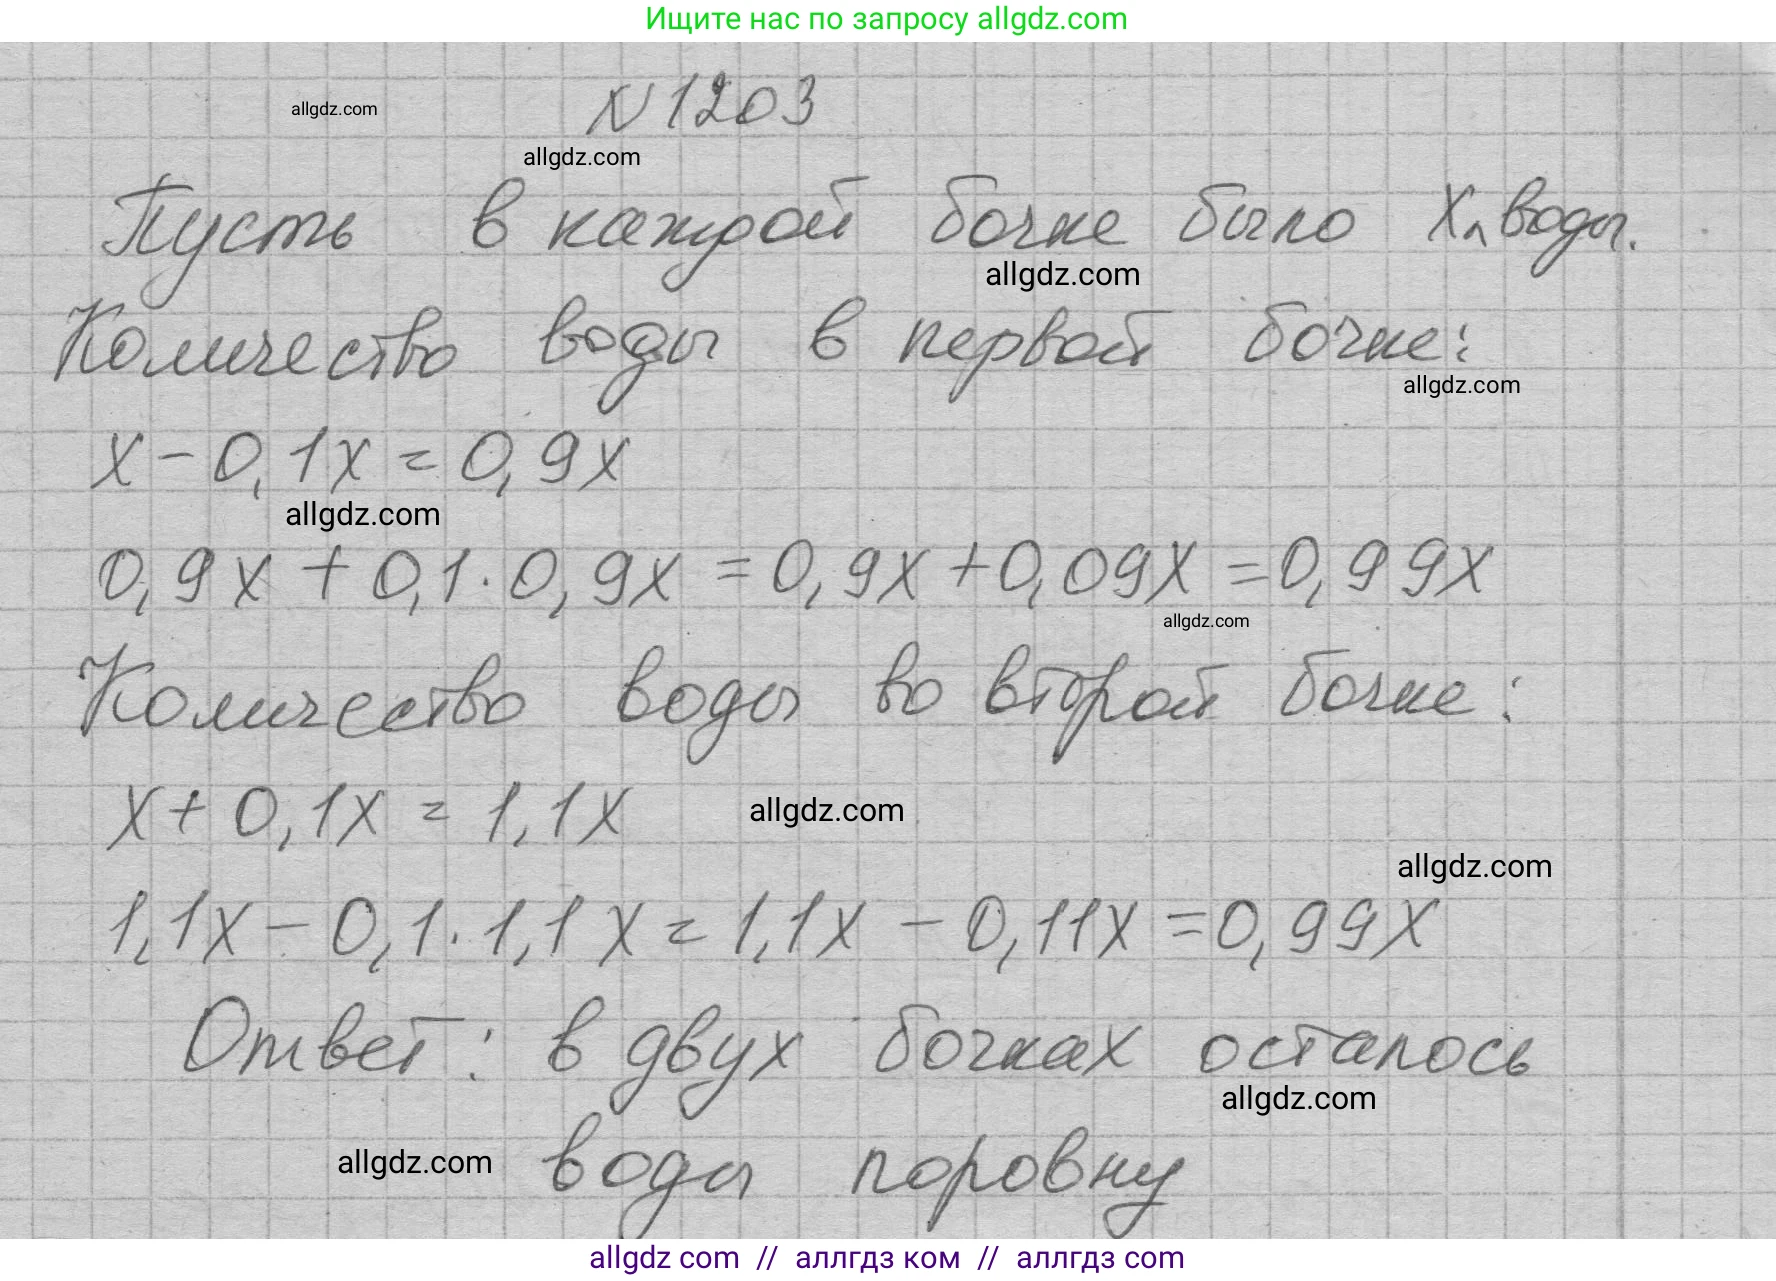 Ищите нас по запросу allgdz.com
N 1203
allgdz.com
allgdz.com
Пусть в каждой бочке было x л воды.
allgdz.com
Количество воды в первой бочке:
allgdz.com
x - 0,1x = 0,9x
allgdz.com
0,9x + 0,1 · 0,9x = 0,9x + 0,09x = 0,99x
allgdz.com
Количество воды во второй бочке:
x + 0,1x = 1,1x
allgdz.com
allgdz.com
1,1x - 0,1 · 1,1x = 1,1x - 0,11x = 0,99x
Ответ: в двух бочках осталось
allgdz.com
воды поровну
allgdz.com
allgdz com // аллгдз ком // аллгдз com